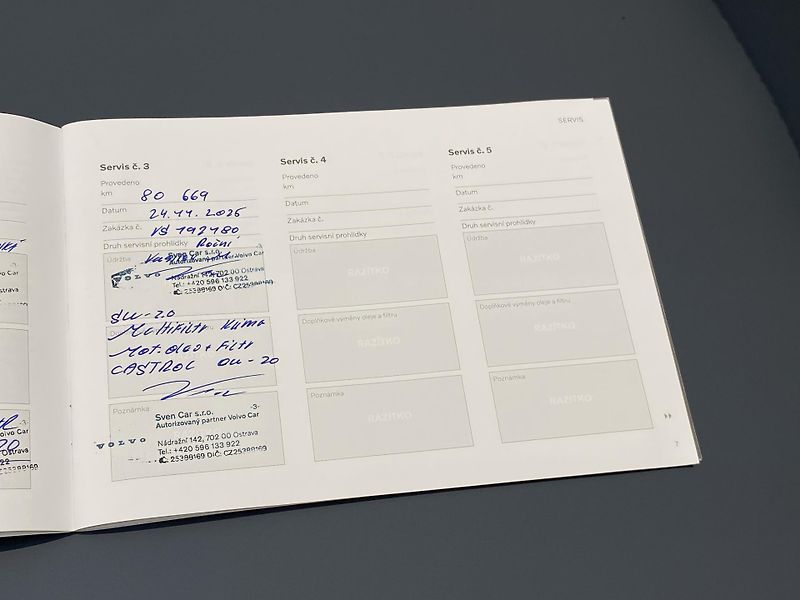 SERVIS
Servis č. 3
Provedeno
km 80 669
Datum 24.11.2025
Zakázka č. VS 192480
Druh servisní prohlídky Roční
Údržba
Sven Car s.r.o. -3-
Autorizovaný partner Volvo Car
VOLVO
Nádražní 142, 702 00 Ostrava
Tel.: +420 596 133 922
IČ: 25399169 DIČ: CZ25399169
0W-20
Multifiltr klima
Mot. olej + Filtr
CASTROL 0W-20
Poznámka
Sven Car s.r.o. -3-
Autorizovaný partner Volvo Car
VOLVO
Nádražní 142, 702 00 Ostrava
Tel.: +420 596 133 922
IČ: 25399169 DIČ: CZ25399169
Servis č. 4
Provedeno
km
Datum
Zakázka č.
Druh servisní prohlídky
Údržba
RAZÍTKO
Doplňkové výměny oleje a filtru
RAZÍTKO
Poznámka
RAZÍTKO
Servis č. 5
Provedeno
km
Datum
Zakázka č.
Druh servisní prohlídky
Údržba
RAZÍTKO
Doplňkové výměny oleje a filtru
RAZÍTKO
Poznámka
RAZÍTKO
7